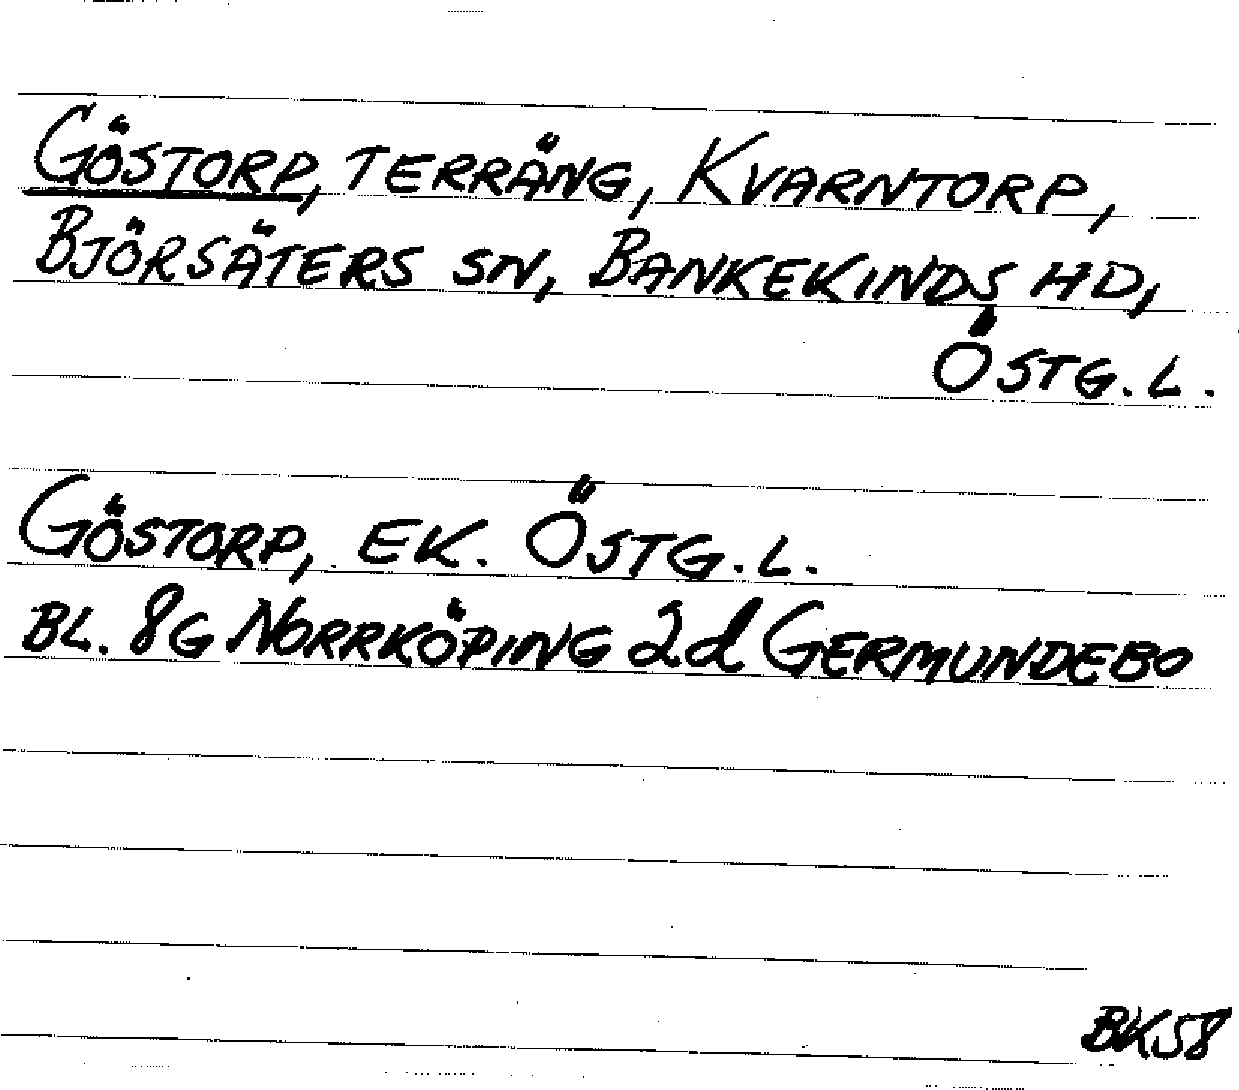 GÖSTORP, TERRÄNG, KVARNTORP,
BJÖRSÄTERS SN, BANKEKINDS HD,
ÖSTG.L.
GÖSTORP, EK. ÖSTG.L.
BL. 8G NORRKÖPING 2d GERMUNDEBO
BK58